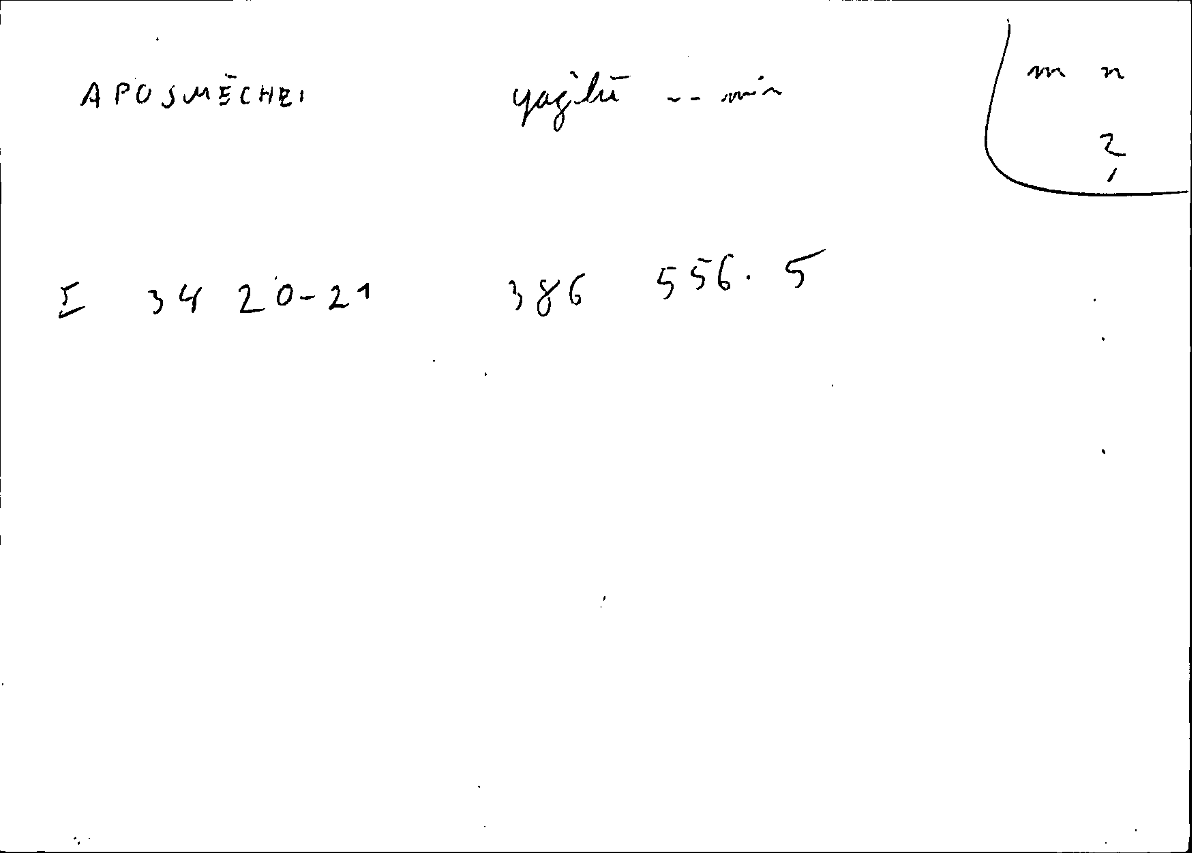 APOSMĒCHEI yagilū -- min
m n
2
I 34 20-21 386 556.5